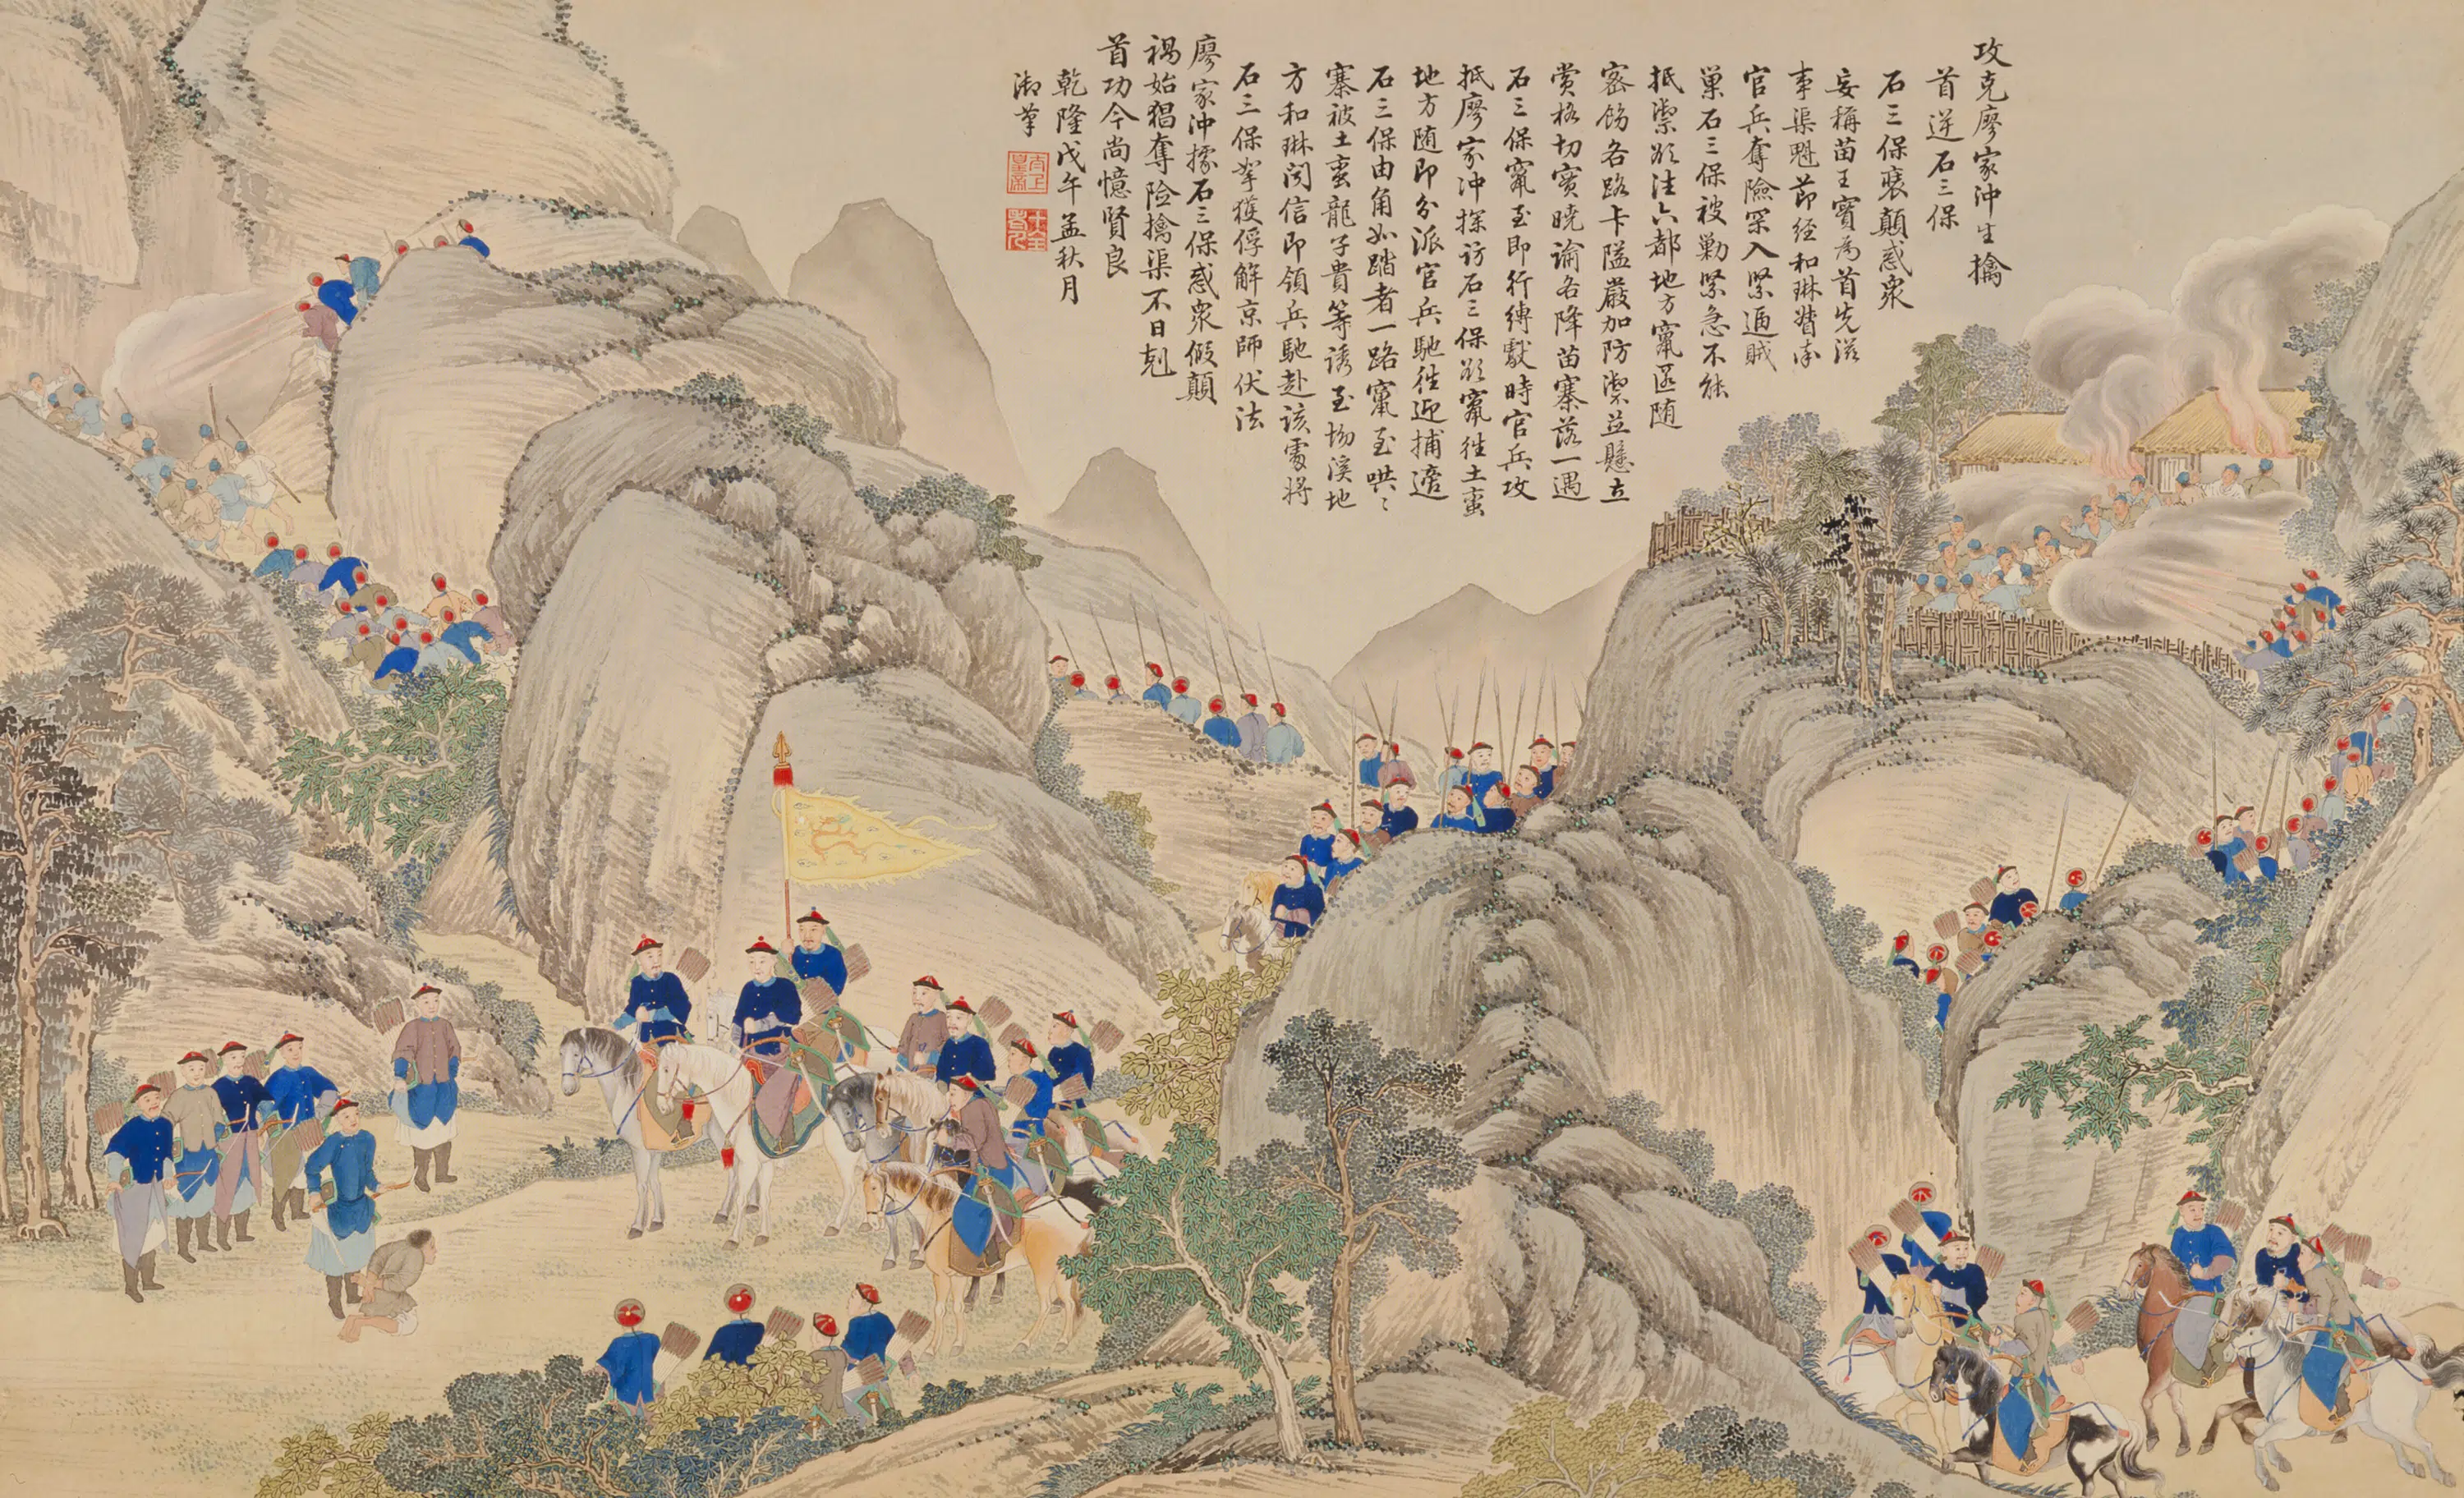 攻克廖家沖生擒
首逆石三保
石三保裹顛惑衆
妄稱苗王實為首先滋
事渠魁節經和琳督率
官兵奪險深入緊逼賊
巢石三保被勦緊急不能
抵禦欲往六都地方竄匿隨
密飭各路卡隘嚴加防禦並懸立
賞格切實曉諭各降苗寨落一遇
石三保竄至即行縛獻時官兵攻
抵廖家沖探訪石三保欲竄往土蠻
地方随即分派官兵馳往迎捕適
石三保由角如踏者一路竄至哄哄
寨被土蠻龍子貴等誘至坳溪地
方和琳聞信即領兵馳赴該處將
石三保拏獲俘解京師伏法
廖家沖據石三保惑衆假顛
禍始猖奪險擒渠不日剋
首功今尚憶賢良
乾隆戊午孟秋月
御筆
太上皇帝
十全老人